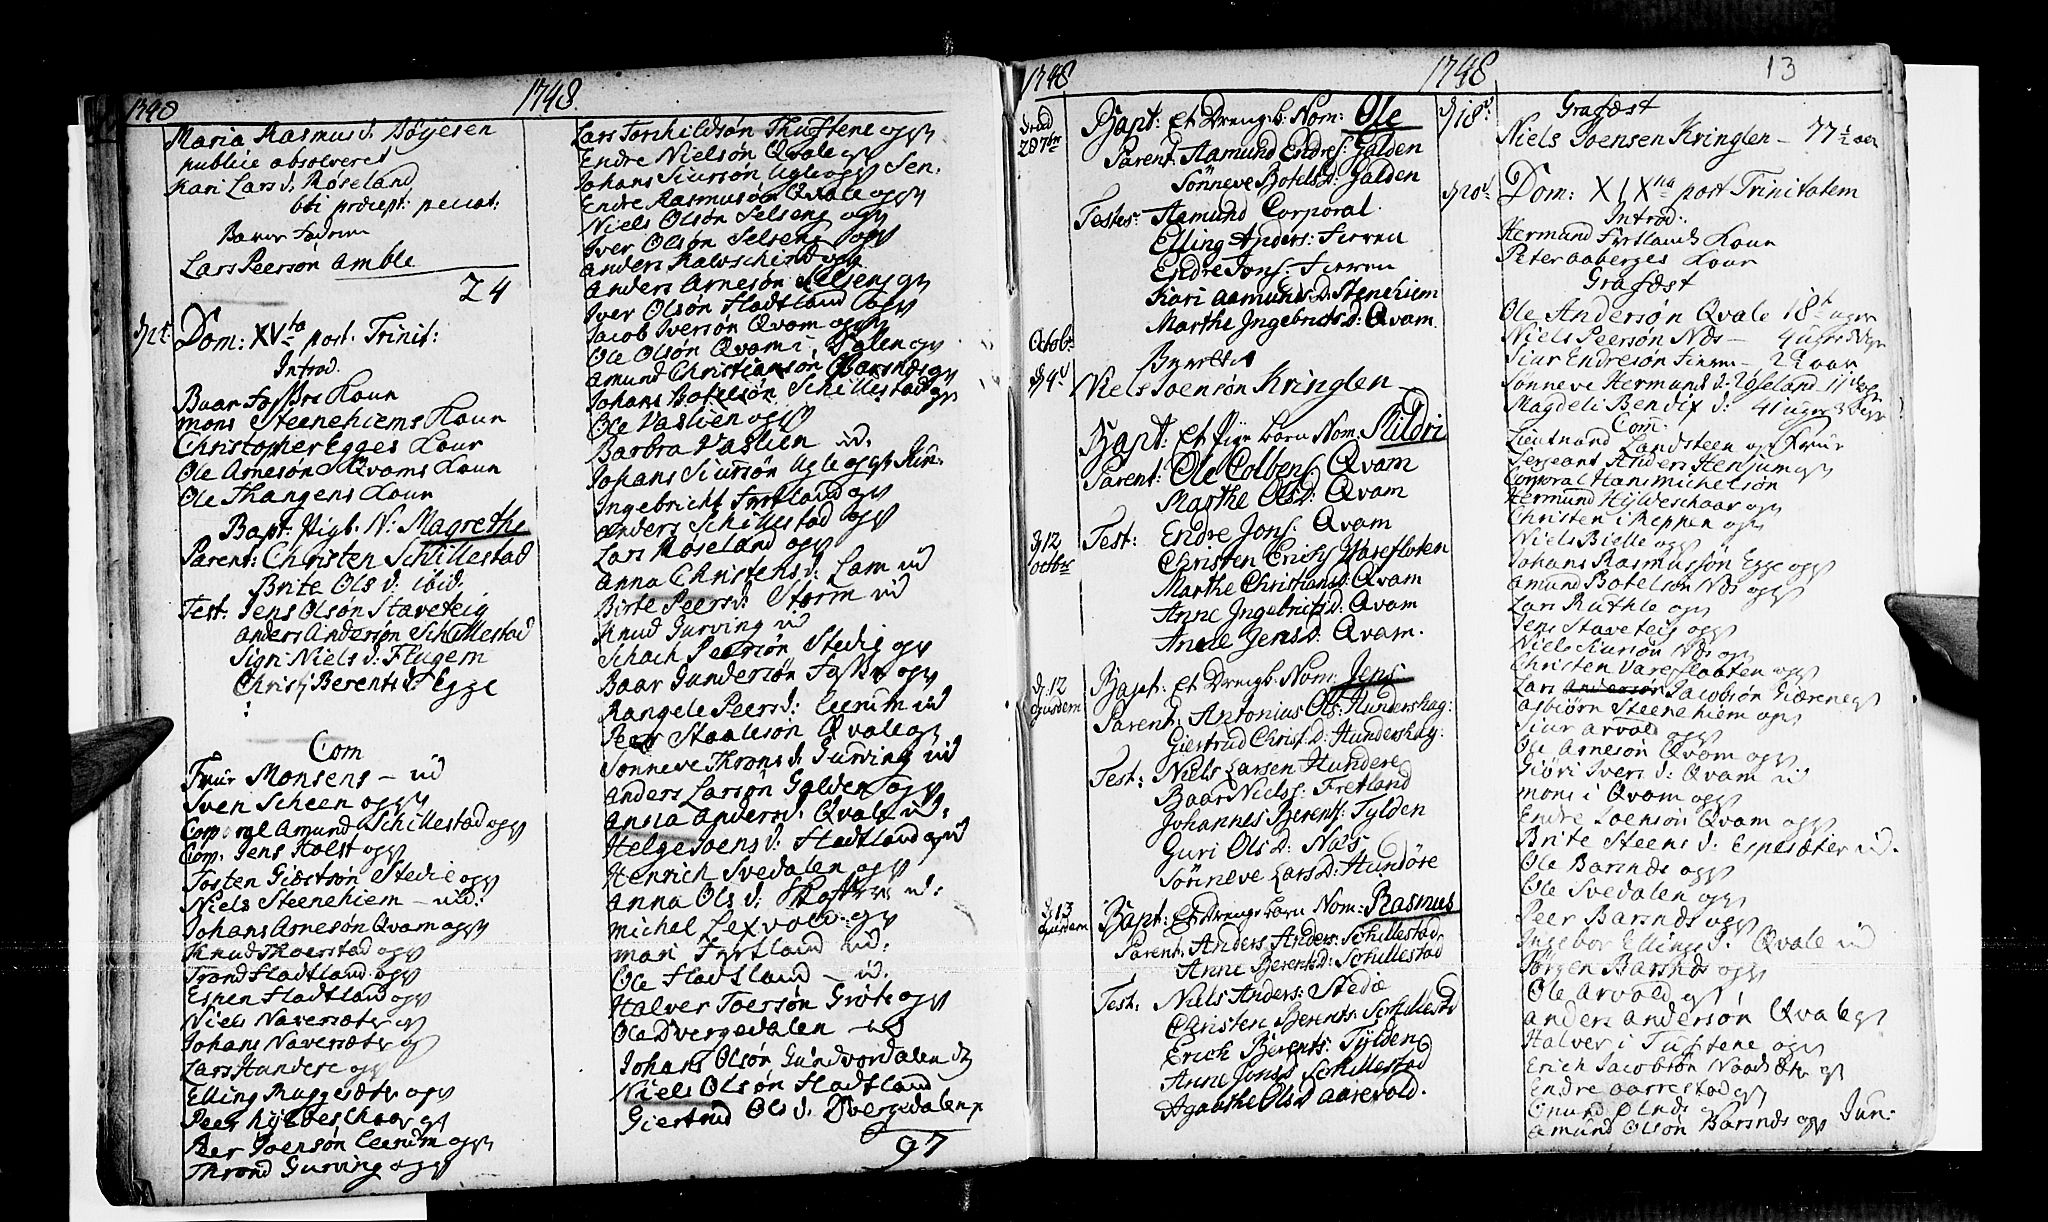 1748
1748.
Maria Rasmus d. Döysen
publicè absolveret
Kari Lars d. Röseland
6ti præcept: peccat:
Lars Peersön Amble
24
Dom: XVta post. Trinit:
Introd.
Baar Koun
Mons Steenehiems Koun
Christopher Egges Koun
Ole Arnesön Qvams Koun
Ole Thangens Koun
Bapt: Pigb. N: Magrethe
Parent: Christen Schillestad
Brite Ols d. ibid.
Test. Jens Olsön Staveteig
Anders Andersön Schillestad
Sigri Niels d. Flugem
Berents d. Egge
Com
Fruer Monsens – ud
Sven Scheen og
Corporal Amund Schillestad og
Corp. Jens Holst og
Tosten Giestsön Stedie og
Niels Steenehiem – ud.
Johans Arnesön Qvam og
Knud Thorstad og
Trond Fladtland og
Espen Fladtland og
Niels Naversæter
Johans Naversæter
Lars Hundere og
Elling Ruggesæter og
Peer Hyldeschaar
Peer Joensön Leerum og
Thrond Gurving og
Lars Torchildsön Thuftene og
Endre Nielsön Qvale
Johans Siursön Ugle og Sen.
Endre Rasmusön Qvale og
Niels Olsön Selseng og
Iver Olsön Selseng og
Anders Kalvschind og
Anders Arnesön Selseng
Iver Olsön Fladtland og
Jacob Iversön Qvam og
Ole Olsön Qvam i Dalen
Amund Christiansön Barsnæs
Johans Botelsön Schillestad
Ole Vaslien og
Barbra Vaslien ud.
Johans Siursön Ugle og Jun.
Ingebricht Fyrtland
Anders Schillestad og
Lars Röseland og
Anna Christens d. Lam ud
Birte Peers d. Storm ud
Knud Gurving ud
Schach Peersön Stedie og
Baar Gundersön og
Rangele Peers d: Leerum ud
Peer Staalesön Qvale
Sønneve Throns d. Gurving ud
Anders Larsön Galden og
Anna Anders d. Qvale ud.
Helge Joens d. Fladtland ud
Henrich Svedalen og
Anna Ols d. ud:
Michel Lexvold
Mari Fyrtland ud.
Ole Fladtland – ud.
Halver Toersön Gröte og
Ole Dvergedalen – ud
Johans Olsön Gundvordalen
Niels Olsön Fladtland
Giertrud Ols d. Dvergedalen
97
1748
1748
13
28 7br
Bapt: Et Drengb: Nom: Ole
Parent. Aamund Endres: Galden
Sönneve Botels D: Galden
Testes: Aamund Corporal.
Elling Anders: Fieren
Endre Jons: Fieren
Kari Aamunds D. Stenehiem
Marthe Ingebrichts D: Qvam
Octob:
d 4d
Niels Joensön Kringlen
Bapt: Et Pige barn Nom: Mildri
Parent: Ole Colbens: Qvam
Marthe Ols D: Qvam
d 12 octbr
Test: Endre Jons: Qvam
Christen Erichs: Vareflaten
Marthe Christians D: Qvam
Anne Ingebrits D: Qvam
Anne Jens D: Qvam.
d. 12 ejusdem
Bapt: Et Drengb. Nom: Jens
Parent. Antonius Ols: Hunderskag:
Giertrud Christ. D: Hunderskag:
Test: Niels Larsen Hundere
Baar Niels: Fretland
Johannes Berents: Tylden
Guri Ols D: Næs
Sönneve Lars D: Hundöre
d 13 ejusdem
Bapt: Et Drenge barn Nom: Rasmus
Parent. Anders Anders: Schillestad
Anne Berents D: Schillestad
Test: Niels Anders: Stedie
Christen Berents: Schillestad
Erich Berents: Tylden
Anne Jons D Schillestad
Agaathe Ols D Aarevold.
d 18d
Grafæst
Niels Joensen Kringlen – 77 1/2 aar
d 20d
Dom: XIXna post Trinitatem
Introd:
Hermund Fyrtlands Koun
Peter Aaberges Koun
Grafæst
Ole Andersön Qvale 18t uger
Niels Peersön Næs – 4 uger
Siur Endresön Fieren – 22 aar
Sönneve Hermunds d. Röseland 11 dage
Magdeli Bendix d: 41 uger
Com:
Lieutnand Landsteen og Fruer
Sergeant Anders Henjum
Corporal Hans Michelsön
Hermund Hyldeschaar og
Christen i Reppen og
Niels Bielle og
Johans Rasmussön Egge og
Amund Botelsön Næs og
Lars Ruthle og
Jens Staveteig og
Niels Siursön Næs og
Christen Vareflaaten og
Lars Andersön Jacobsön Giærene
Asbiörn Steenehiem og
Siur Arvold og
Ole Arnesön Qvam og
Giöri Ivers d. Qvam ud
Mons i Qvam og
Endre Joensön Qvam og
Brite Steens d. Espesæter ud.
Ole Barsnæs og
Ole Svedalen og
Peer Barsnæs og
Ingebor Ellings d. Qvale ud
Jörgen Barsnæs og
Ole Arvold
Anders Andersön Qvale
Halver i Tuftene og
Erich Jacobsön Naadsæter
Endre Aarrestad
Amund Olsön Barsnæs og Jun: